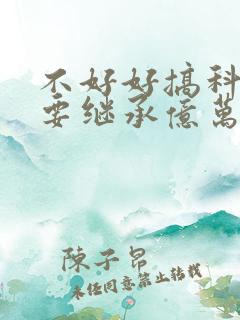 不好好搞科
要继承億萬
陳子昂
未经同意禁止转载